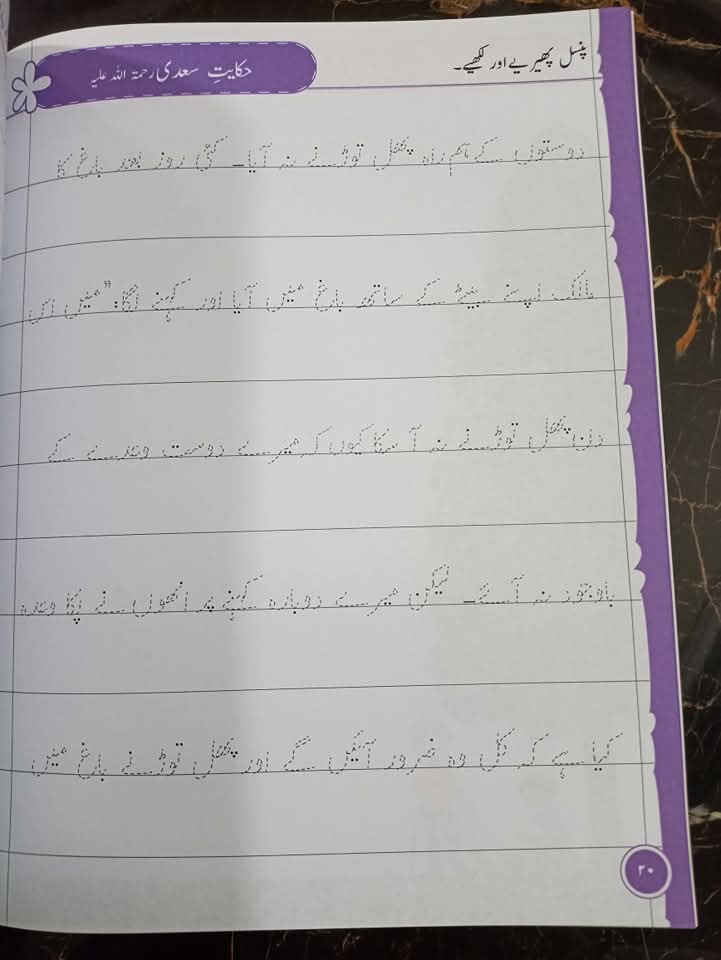 پنسل پھیریے اور لکھیے۔
حکایتِ سعدی رحمۃ اللہ علیہ
دوستوں کے ہم راہ پھل توڑنے نہ آیا۔ کئی روز بعد باغ کا
مالک اپنے بیٹے کے ساتھ باغ میں آیا اور کہنے لگا: ”میں اس
دن پھل توڑنے نہ آ سکا کیوں کہ میرے دوست وعدے کے
باوجود نہ آئے۔ لیکن میرے دوبارہ کہنے پر انھوں نے پکا وعدہ
کیا ہے کہ کل وہ ضرور آئیں گے اور پھل توڑنے باغ میں
۲۰